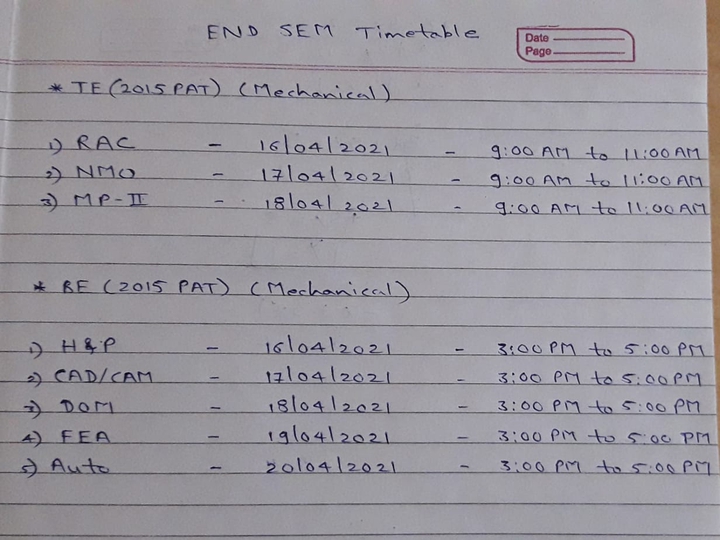 END SEM Timetable
Date
Page
* TE (2015 PAT) (Mechanical)
1) RAC - 16/04/2021 - 9:00 AM to 11:00 AM
2) NMO - 17/04/2021 - 9:00 AM to 11:00 AM
3) MP-II - 18/04/2021 - 9:00 AM to 11:00 AM
* BE (2015 PAT) (Mechanical)
1) H&P - 16/04/2021 - 3:00 PM to 5:00 PM
2) CAD/CAM - 17/04/2021 - 3:00 PM to 5:00 PM
3) DOM - 18/04/2021 - 3:00 PM to 5:00 PM
4) FEA - 19/04/2021 - 3:00 PM to 5:00 PM
5) Auto - 20/04/2021 - 3:00 PM to 5:00 PM